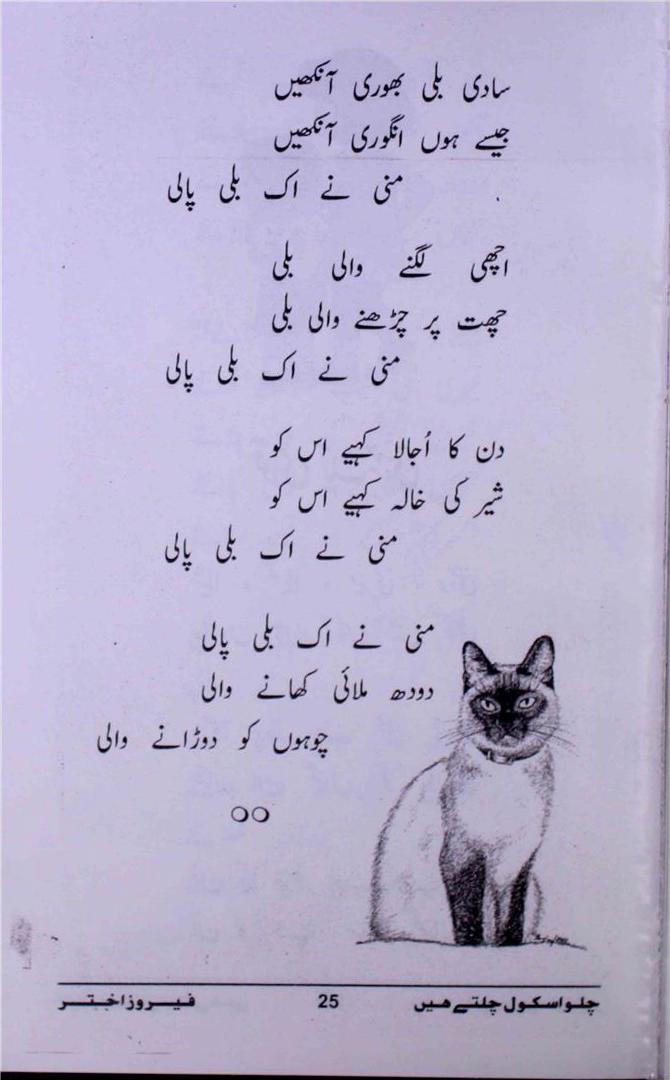 سادی بلی بھوری آنکھیں
جیسے ہوں انگوری آنکھیں
منی نے اک بلی پالی
اچھی لگنے والی بلی
چھت پر چڑھنے والی بلی
منی نے اک بلی پالی
دن کا اُجالا کہیے اس کو
شیر کی خالہ کہیے اس کو
منی نے اک بلی پالی
منی نے اک بلی پالی
دودھ ملائی کھانے والی
چوہوں کو دوڑانے والی
چلو اسکول چلتے ھیں 25 فیروز اختر